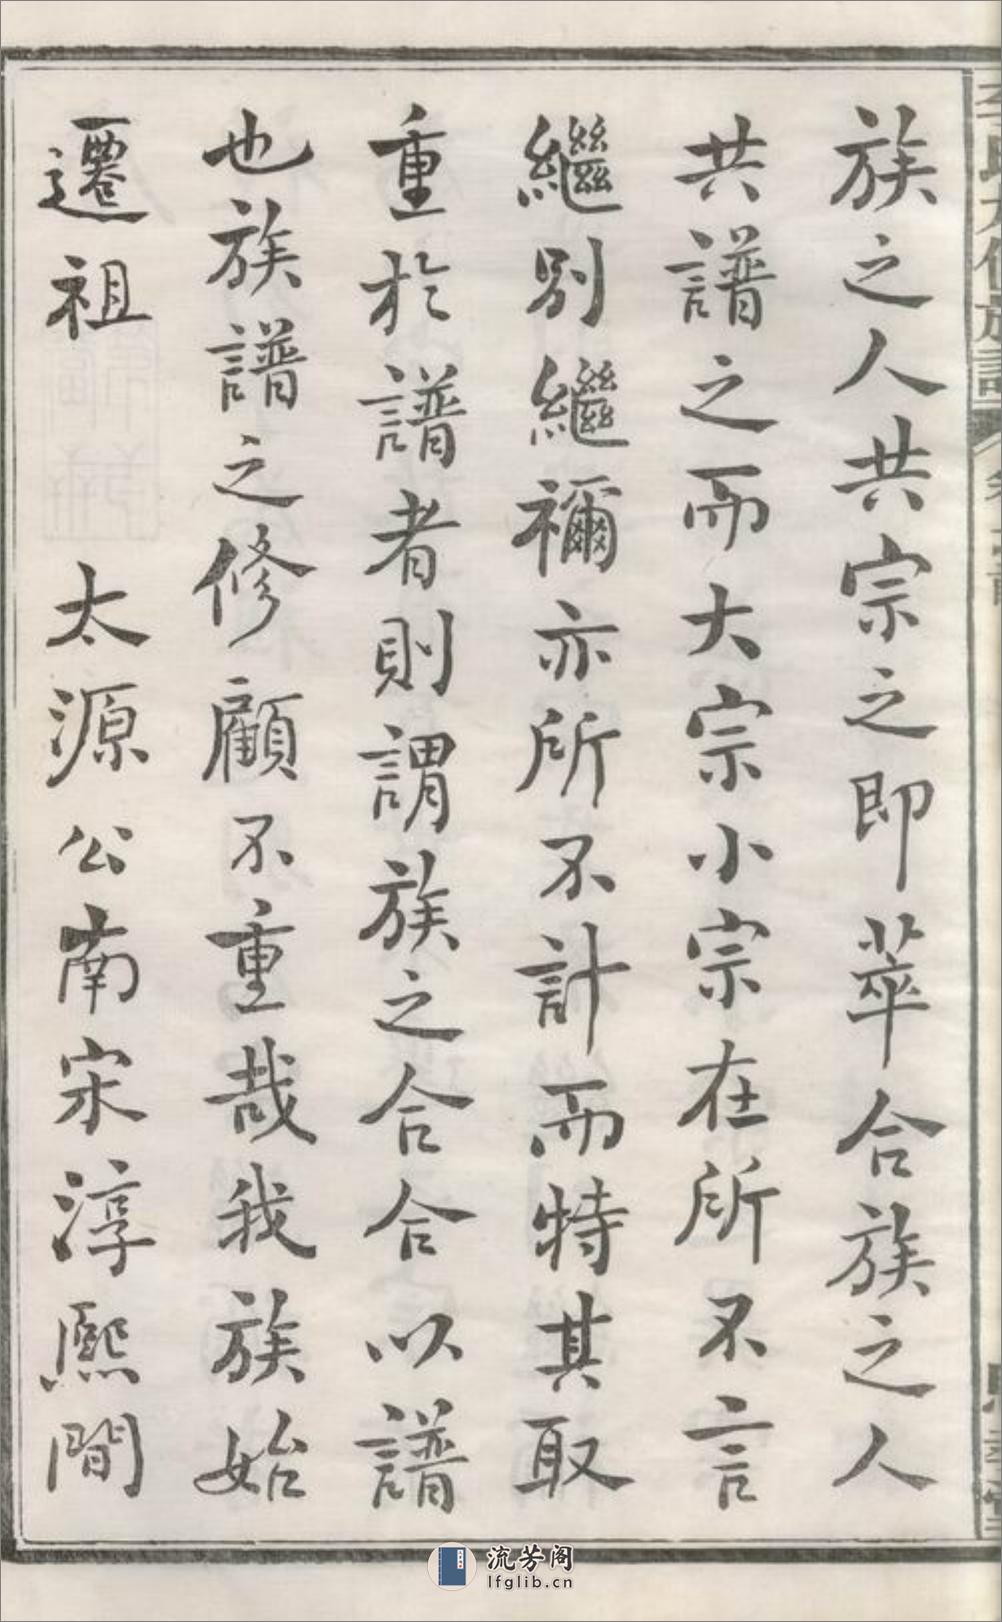 族之人共宗之即萃合族之人
共譜之而大宗小宗在所不言
繼別繼禰亦所不計而特其取
重於譜者則謂族之合合以譜
也族譜之修顧不重哉我族始
遷祖 太源公南宋淳熙間
流芳阁
lfglib.cn